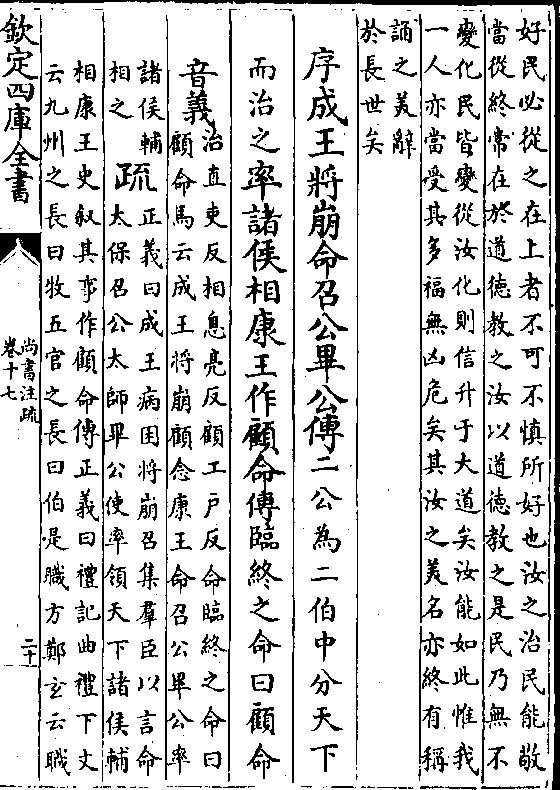 好民必從之在上者不可不慎所好也汝之治民能敬
當從終常在於道德教之汝以道德教之是民乃無不
變化民皆變從汝化則信升于大道矣汝能如此惟我
一人亦當受其多福無凶危矣其汝之美名亦終有稱
誦之美辭
於長世矣
序成王將崩命召公畢公傳二公為二伯中分天下
而治之率諸侯相康王作顧命傳臨終之命曰顧命
音義治直吏反相息亮反顧工戶反命臨終之命曰
顧命馬云成王將崩顧念康王命召公畢公率
諸侯輔
相之
疏正義曰成王病困將崩召集羣臣以言命
太保召公太師畢公使率領天下諸侯輔
相康王史叙其事作顧命傳正義曰禮記曲禮下文
云九州之長曰牧五官之長曰伯是職方鄭玄云職
欽定四庫全書
尚書注疏
卷十七
二十